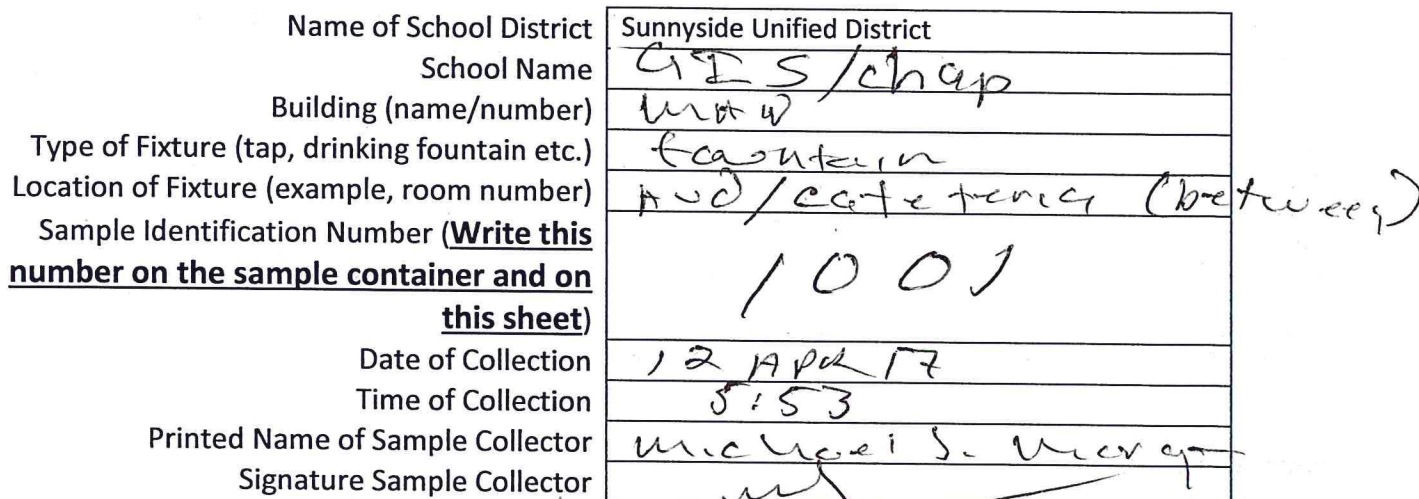 Name of School District Sunnyside Unified District
School Name GIS/chap
Building (name/number)
Type of Fixture (tap, drinking fountain etc.) fountain
Location of Fixture (example, room number) AUD/cafeteria (between)
Sample Identification Number (Write this
number on the sample container and on
this sheet) 1001
Date of Collection 12 APR 17
Time of Collection 5:53
Printed Name of Sample Collector Michael S.
Signature Sample Collector